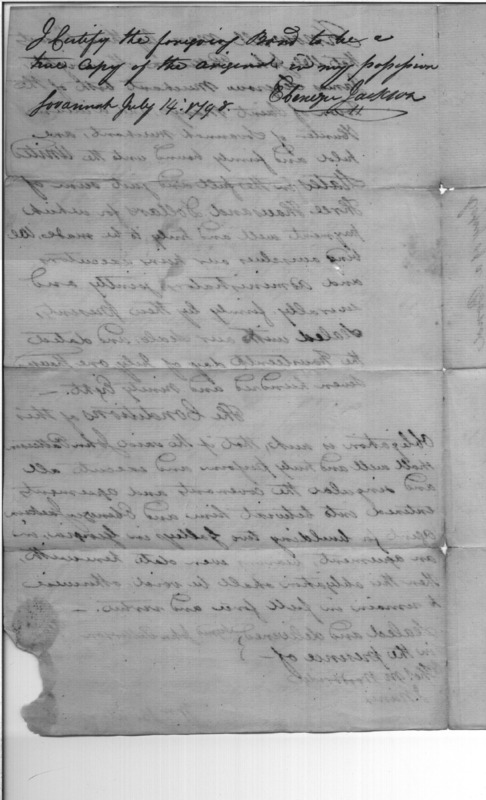 I Certify the foregoing Bond to be a
true Copy of the original in my possession
Savannah July 14. 1798.
Ebenezer Jackson
held and firmly bound unto the United
States in the full and just sum of
Three Thousand Dollars for which
payment well and truly to be made, We
bind ourselves our heirs executors
and administrators jointly and
severally firmly by these Presents,
Sealed with our seals, and dated
the fourteenth day of July one
seven hundred and ninety Eight. —
The Conditions of this
Obligation is such, that if the said John
shall well and truly perform and execute all
and singular the covenants and agreements
entered into between him and Ebenezer Jackson
agent for building two Galleys in Georgia, in
an agreement, bearing even date herewith,
then this obligation shall be void otherwise
to remain in full force and virtue. —
Sealed and delivered
in the presence of —